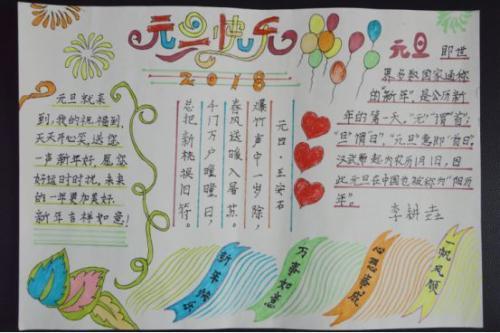 元旦快乐
2018
元旦就来
到,我的祝福到,
天天开心笑,送您
一声新年好,愿您
好运时时扰,未来
的一年更加美好,
新年吉祥如意!
元旦 王安石
爆竹声中一岁除,
春风送暖入屠苏。
千门万户曈曈日,
总把新桃换旧符。
元旦 即世
界多数国家通称
的"新年",是公历新
年的第一天,"元"谓"首",
"旦"谓"日","元旦"意即"首日"。
汉武帝起为农历1月1日,因
此元旦在中国也被称为"阳历
年"。
李耕垚
新年快乐
万事如意
心想事成
一帆风顺